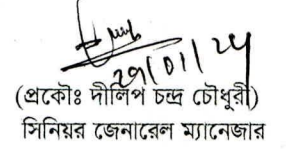 ২৭/01/২৫
(প্রকৌঃ দীলিপ চন্দ্র চৌধুরী)
সিনিয়র জেনারেল ম্যানেজার